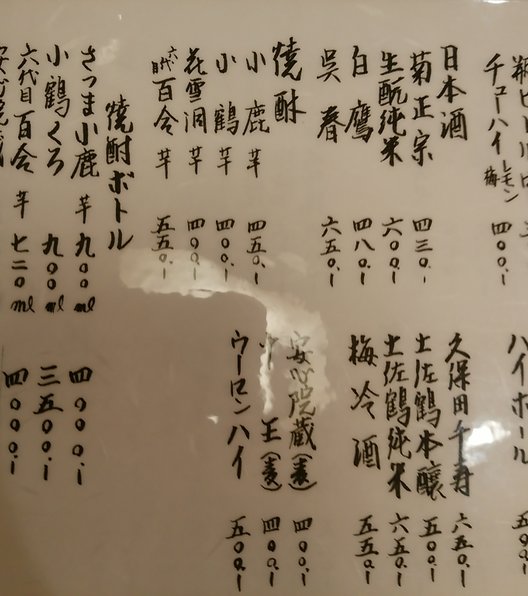 チューハイ レモン 梅 四〇〇.ー
ハイボール
日本酒
菊正宗 四三〇.ー
生酛純米 六〇〇.ー
白鷹 四八〇.ー
呉春 六五〇.ー
久保田千寿 六五〇.ー
土佐鶴本醸 五〇〇.ー
土佐鶴純米 六五〇.ー
梅冷酒 五五〇.ー
焼酎
小鹿 芋 四五〇.ー
小鶴 芋 四〇〇.ー
花雪洞 芋 四〇〇.ー
六代目百合 芋 五五〇.ー
安心院蔵(麦) 四〇〇.ー
王(麦) 四〇〇.ー
ウーロンハイ 五〇〇.ー
焼酎ボトル
さつま小鹿 芋 九〇〇ml 四〇〇〇.ー
小鶴くろ 九〇〇ml 三五〇〇.ー
六代目百合 芋 七二〇ml 四〇〇〇.ー